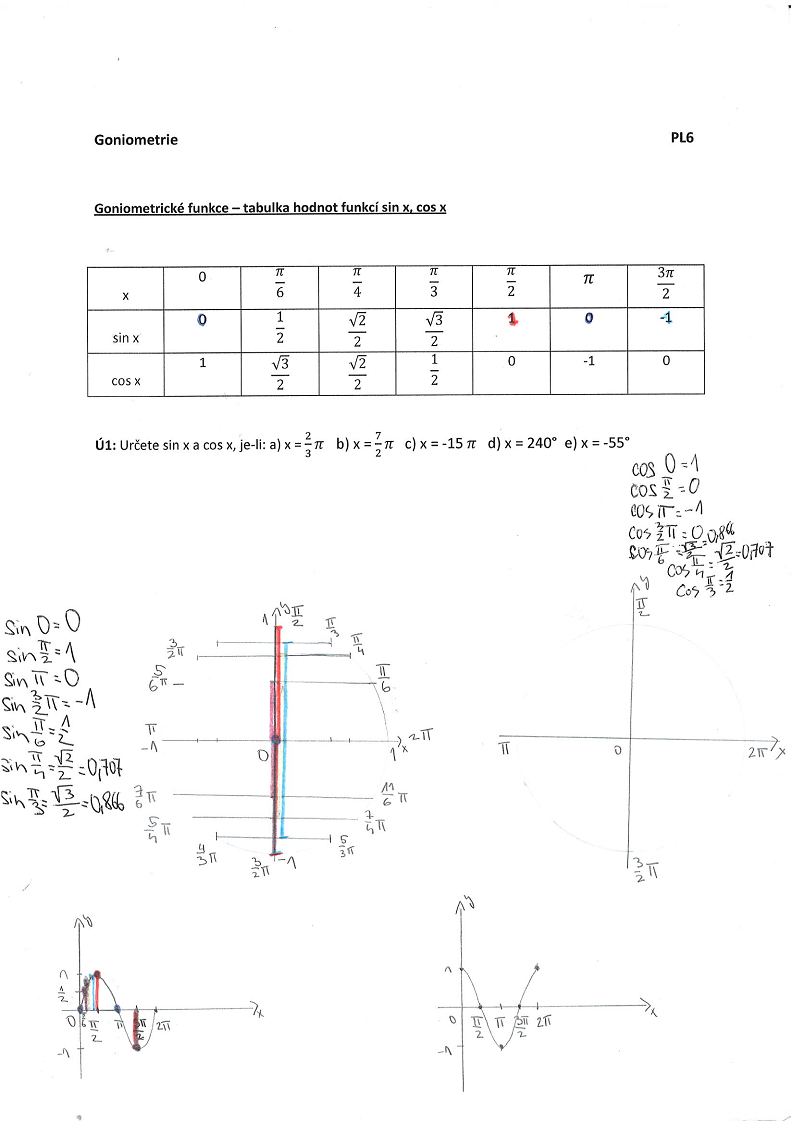 Goniometrie PL6
Goniometrické funkce – tabulka hodnot funkcí sin x, cos x
x 0 π/6 π/4 π/3 π/2 π 3π/2
sin x 0 1/2 √2/2 √3/2 1 0 -1
cos x 1 √3/2 √2/2 1/2 0 -1 0
Ú1: Určete sin x a cos x, je-li: a) x = 2/3 π b) x = 7/2 π c) x = -15 π d) x = 240° e) x = -55°
cos 0 = 1
cos π/2 = 0
cos π = -1
cos 3/2 π = 0
cos π/6 = √3/2 = 0,866
cos π/4 = √2/2 = 0,707
cos π/3 = 1/2
sin 0 = 0
sin π/2 = 1
sin π = 0
sin 3/2 π = -1
sin π/6 = 1/2
sin π/4 = √2/2 = 0,707
sin π/3 = √3/2 = 0,866
1 y π/2
π/3
3/2 π π/4
5/6 π π/6
π
-1 0 1 x 2π
7/6 π 11/6 π
5/4 π 7/4 π
4/3 π 3/2 π -1 5/3 π
y
π/2
π 0 2π x
3/2 π
y
1
1/2
0 π/2 π 3π/2 2π x
-1
y
1
0 π/2 π 3π/2 2π x
-1